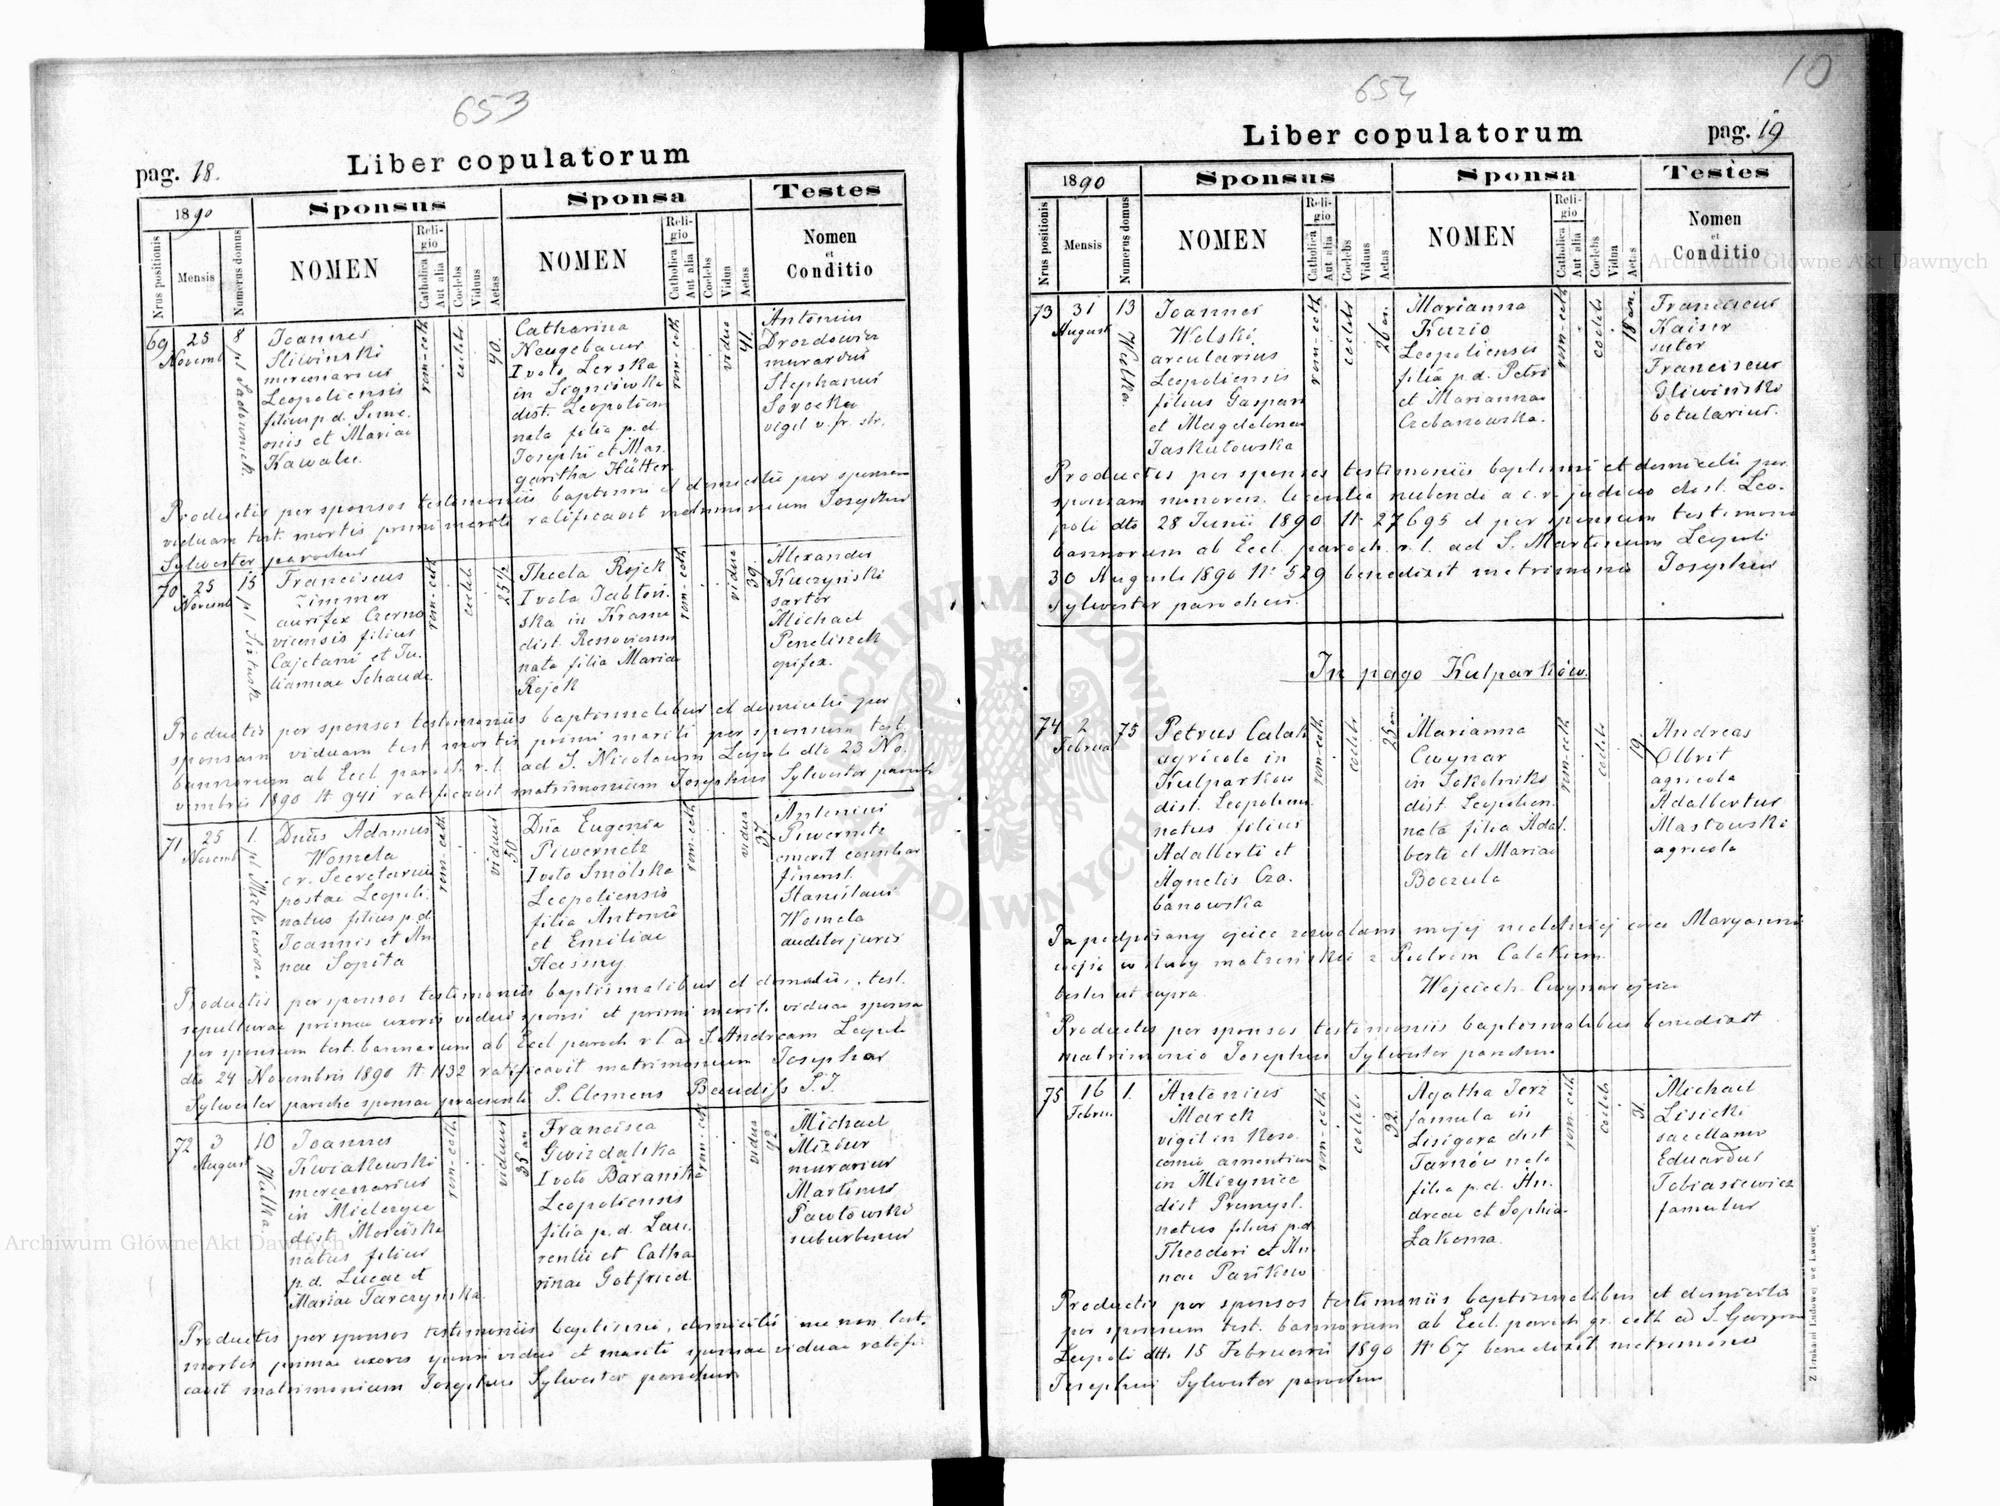 653
pag. 18.
Liber copulatorum
1890
Sponsus
Sponsa
Testes
Nrus positionis
Mensis
Numerus domus
NOMEN
Religio
Catholica
Aut alia
Coelebs
Viduus
Aetas
NOMEN
Religio
Catholica
Aut alia
Coelebs
Vidua
Aetas
Nomen
et
Conditio
69
25
Novemb
8
Joannes
Sliwinski
mercenarius
Leopoliensis
filius p.d. Sime-
onis et Mariae
Kawalec
rom-cath
coelebs
40.
Catharina
Neugebauer
I voto Lerska
in Sygniówka
dist. Leopolien
nata filia p.d.
Josephi et Mar.
garitha Hütter
rom-cath
vidua
41.
Antonius
Drozdowicz
murarius
Stephanus
Sorocka
vigil v. fr. str.
Productis per sponsos testimoniis baptismi et domicilii per sponsam
viduam test. mortis primi mariti ratificavit matrimonium Josephus
Sylwester parochus
70
25
Novemb
15
Franciscus
Zimmer
aurifex Czerno
viensis filius
Cajetani et Ju-
liannae Schaude
rom-cath
coelebs
25½
Thecla Rojek
I voto Jabłoń.
ska in Krasne
dist. Ressoviensis
nata filia Mariae
Rojek
rom-cath
vidua
39
Alexander
Kuczyński
sartor
Michael
Peneliszek
opifex.
Productis per sponsos testimoniis baptismalibus et domicilii per
sponsam viduam test mortis primi mariti per sponsum test.
bannorum ab Eccl. paroch. r. l. ad S. Nicolaum Leopoli dto 23 No.
vembris 1890 N. 941 ratificavit matrimonium Josephus Sylwester paroch
71
25
Novemb
1.
Dnus Adamus
Womela
c.r. Secretarius
postae Leopoli.
natus filius p.d.
Joannis et An
nae Sopita
rom-cath
viduus
50
Dna Eugenia
Piwernetz
I voto Smólska
Leopoliensis
filia Antonii
et Emiliae
Hasiny
rom-cath
vidua
37
Antonius
Piwernetz
emerit consiliar
finanst.
Stanislaus
Womela
auditor juris
Productis per sponsos testimoniis baptismalibus et domicilii, test.
sepulturae primae uxoris vidui sponsi et primi mariti viduae sponsae
per sponsum test. bannorum ab Eccl paroch r l ad S. Andream Leopoli
dto 24 Novembris 1890 N. 1132 ratificavit matrimonium Josephus
Sylwester parocho sponsae praesente P. Clemens Baudiss S.J.
72
3
August
10
Wulka
Joannes
Kwiatkowski
mercenarius
in Mielczyce
dist Mościska
natus filius
p.d. Lucae et
Mariae Tarczyńska
rom-cath.
viduus
35 an
Francisca
Gwizdalska
I voto Barańska
Leopoliensis
filia p.d. Lau-
rentii et Catha
rinae Gotfried
rom-cath
vidua
42
Michael
Miziur
murarius
Martinus
Pawłowski
suburbanus
Productis per sponsos testimoniis baptismi, domicilii nec non test.
mortis primae uxoris sponsi vidui et mariti sponsae viduae ratifi-
cavit matrimonium Josephus Sylwester parochus
654
10
Liber copulatorum
pag. 19
1890
Sponsus
Sponsa
Testes
Nrus positionis
Mensis
Numerus domus
NOMEN
Religio
Catholica
Aut alia
Coelebs
Viduus
Aetas
NOMEN
Religio
Catholica
Aut alia
Coelebs
Vidua
Aetas
Nomen
et
Conditio
73
31
August
13
Wulka
Joannes
Welski
arcularius
Leopoliensis
filius Gaspari
et Magdalena
Jaskułowska
rom-cath
coelebs
26 an.
Marianna
Kuzio
Leopoliensis
filia p.d. Petri
et Marianna
Czabanowska.
rom-cath
coelebs
18 an.
Franciscus
Kaiser
sutor
Franciscus
Gliwiński
betularius.
Productis per sponsos testimoniis baptismi et domicilii per
sponsam minoren. licentia nubendi a c. r. judicio dist. Leo-
poli dto 28 Junii 1890 N. 27695 et per sponsum testimonio
bannorum ab Eccl. paroch. r. l. ad S. Martinum Leopoli
30 Augusti 1890 N. 529 benedixit matrimonio Josephus
Sylwester parochus.
In pago Kulparków.
74
2
Februa
75
Petrus Całak
agricola in
Kulparków
dist. Leopolien.
natus filius
Adalberti et
Agnetis Cza-
banowska
rom-cath.
coelebs
25 an
Marianna
Cwynar
in Sokolniki
dist Leopolien.
nata filia Adal.
berti et Mariae
Boczula
rom-cath
coelebs
19.
Andreas
Olbrit
agricola
Adalbertus
Masłowski
agricola
Ja podpisany ojciec zezwalam mojej nieletniej córce Maryannie
wejść w śluby małżeńskie z Piotrem Całakiem.
testes ut supra.
Wojciech Cwynar ojciec
Productis per sponsos testimoniis baptismalibus benedixit
matrimonio Josephus Sylwester parochus
75
16
Febru.
1.
Antonius
Marek
vigil in Noso
comio amentium
in Mizyniec
dist Premysl.
natus filius p.d.
Theodori et An
nae Pańków
rom-cath
coelebs
32
Agatha Jerz
famula in
Lisigora dist
Tarnów nata
filia p.d. An-
dreae et Sophia
Łakoma.
rom-cath
coelebs
31.
Michael
Lisicki
sacellanus
Eduardus
Tobiasiewicz
famulus
Productis per sponsos testimoniis baptismalibus et domicilii
per sponsum test. bannorum ab Eccl. paroch gr. cath ad S. Georgium
Leopoli dto. 15 Februarii 1890 N. 67 benedixit matrimonio
Josephus Sylwester parochus
Z Drukarni Ludowej we Lwowie.
Archiwum Główne Akt Dawnych
Archiwum Główne Akt Dawnych
ARCHIWUM GŁÓWNE AKT DAWNYCH